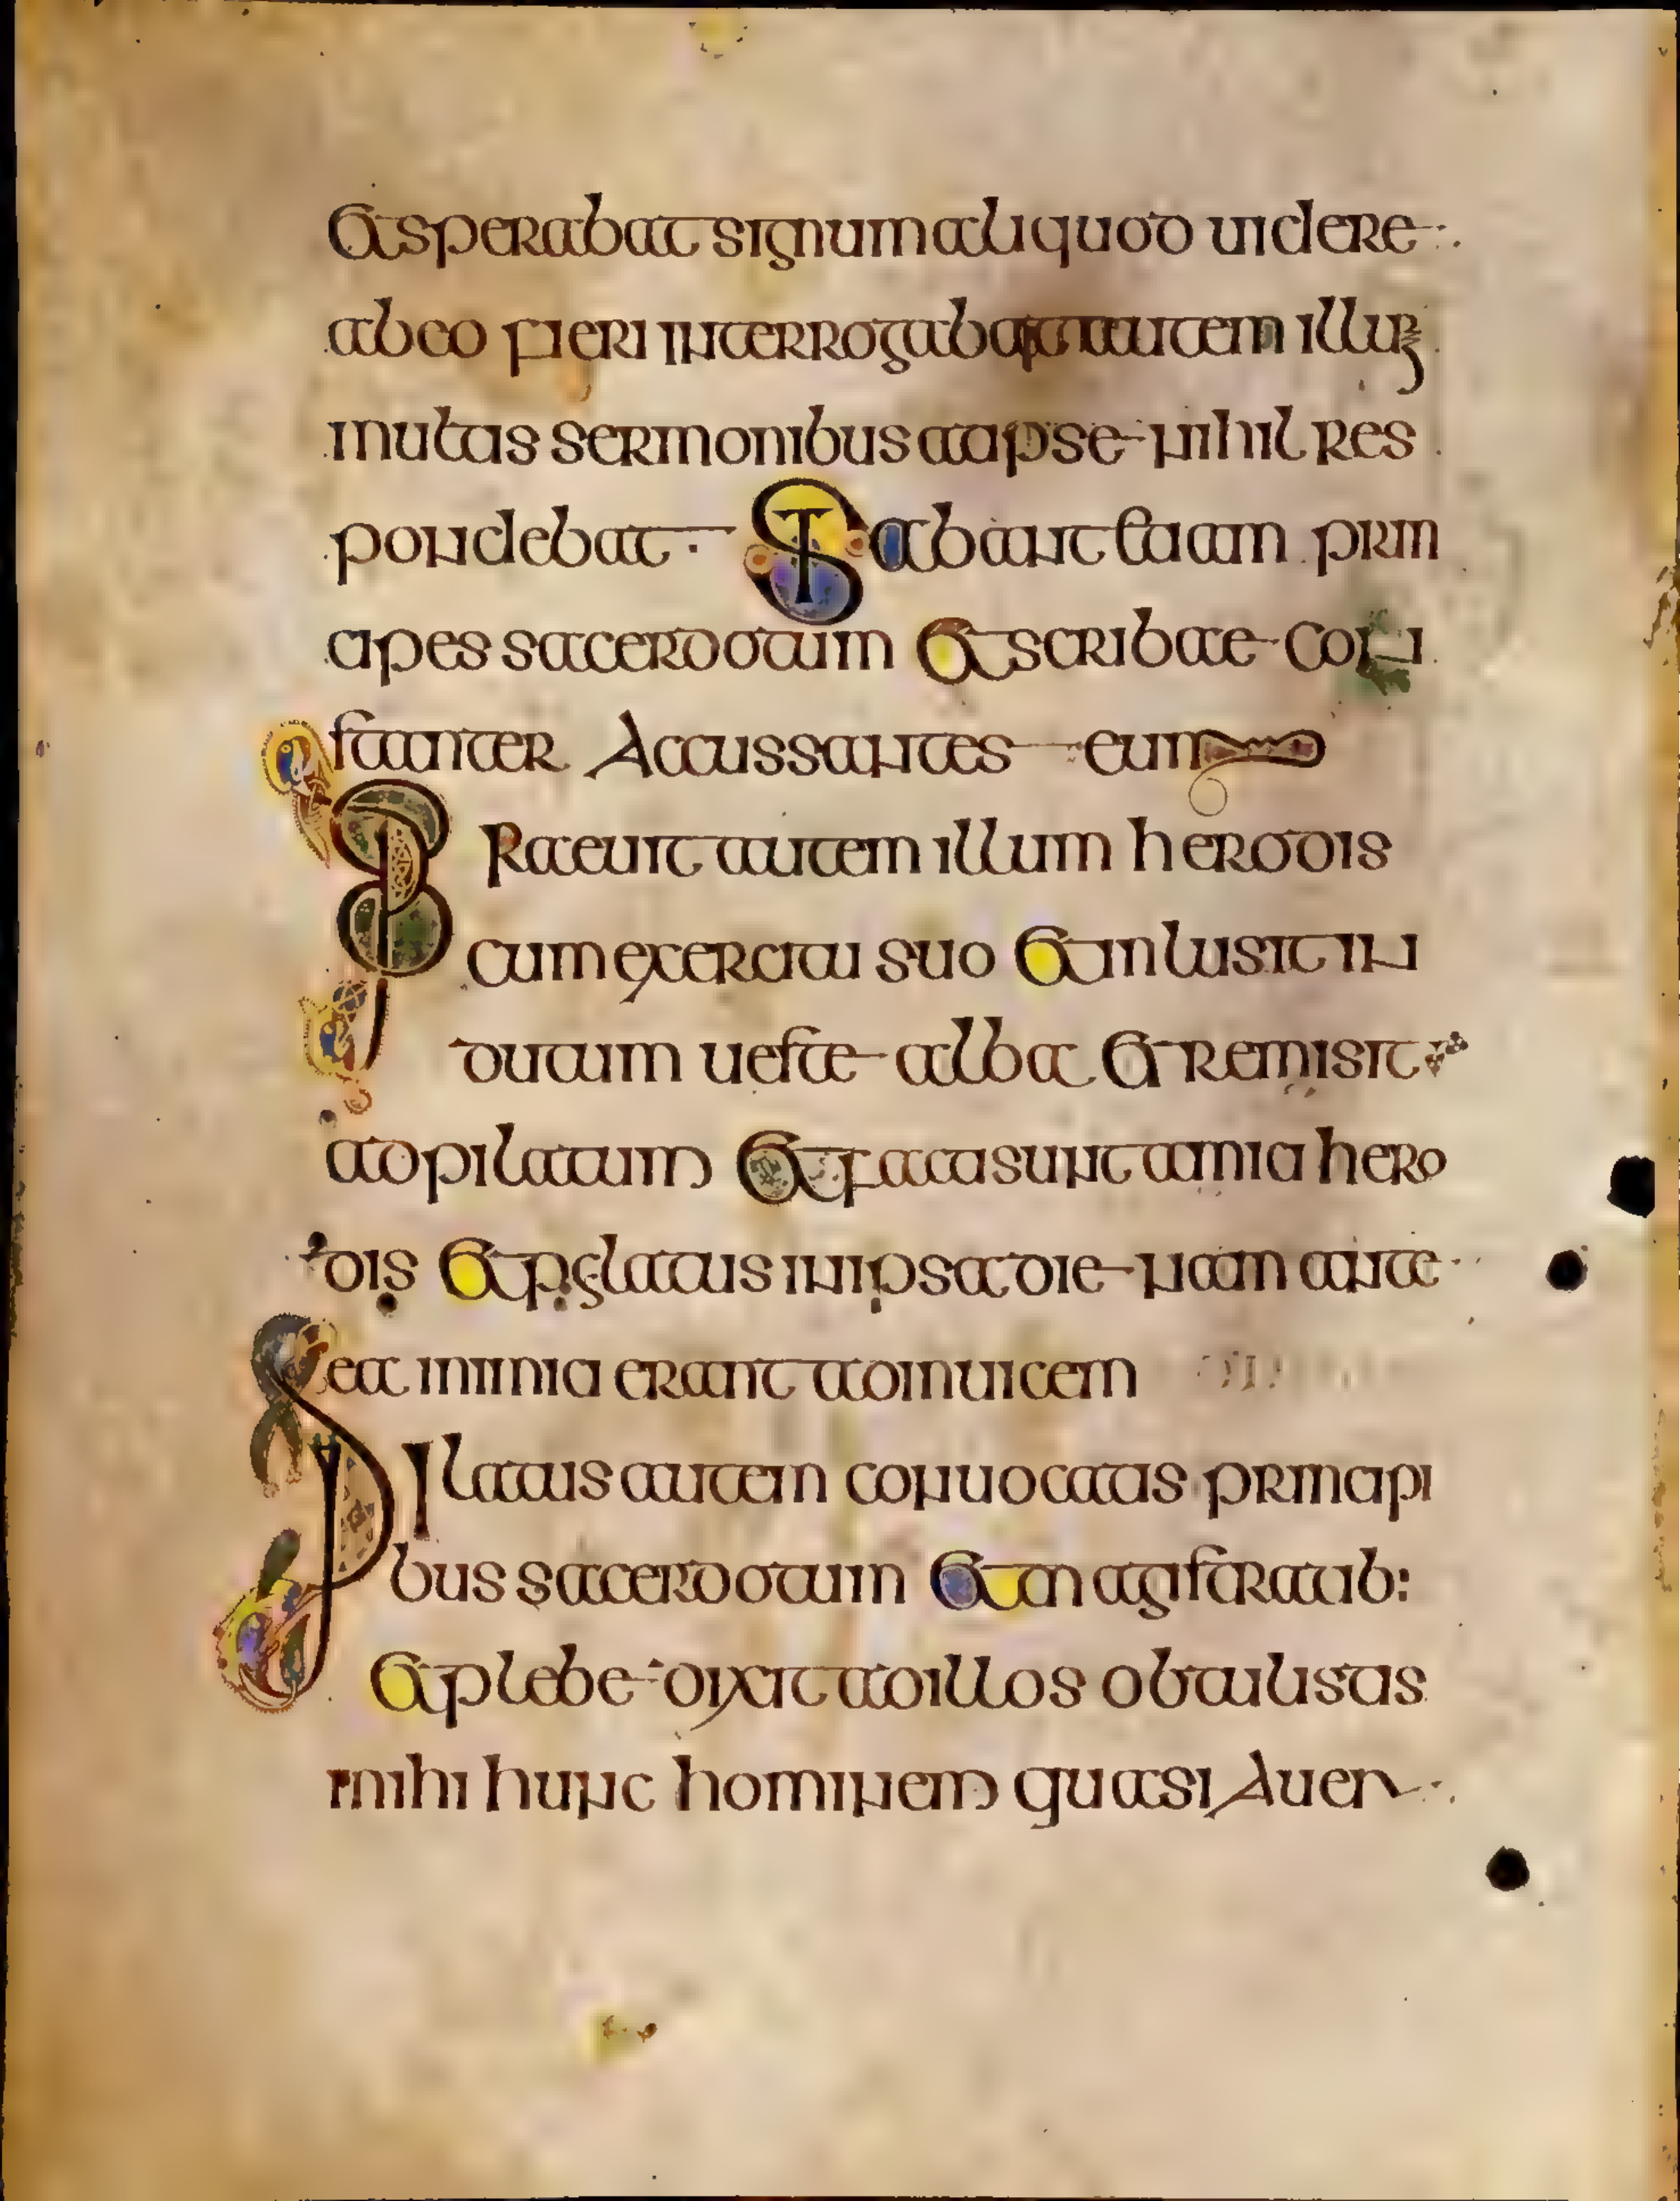 Et sperabat signum aliquod uidere
ab eo fieri interrogabat autem illū
multis sermonibus at ipse nihil res
pondebat Stabant etiam prin
cipes sacerdotum et scribae con
stanter accussantes eum
Praeuit autem illum herodis
cum exercitu suo et inlusit in
dutum ueste alba et remisit
ad pilatum et facti sunt amici hero
dis et pylatus in ipsa die nam ante
ea inimici erant ad inuicem
Pilatus autem conuocatis principi
bus sacerdotum et magistratib:
et plebe dixit ad illos obtulistis
mihi hunc hominem quasi auer